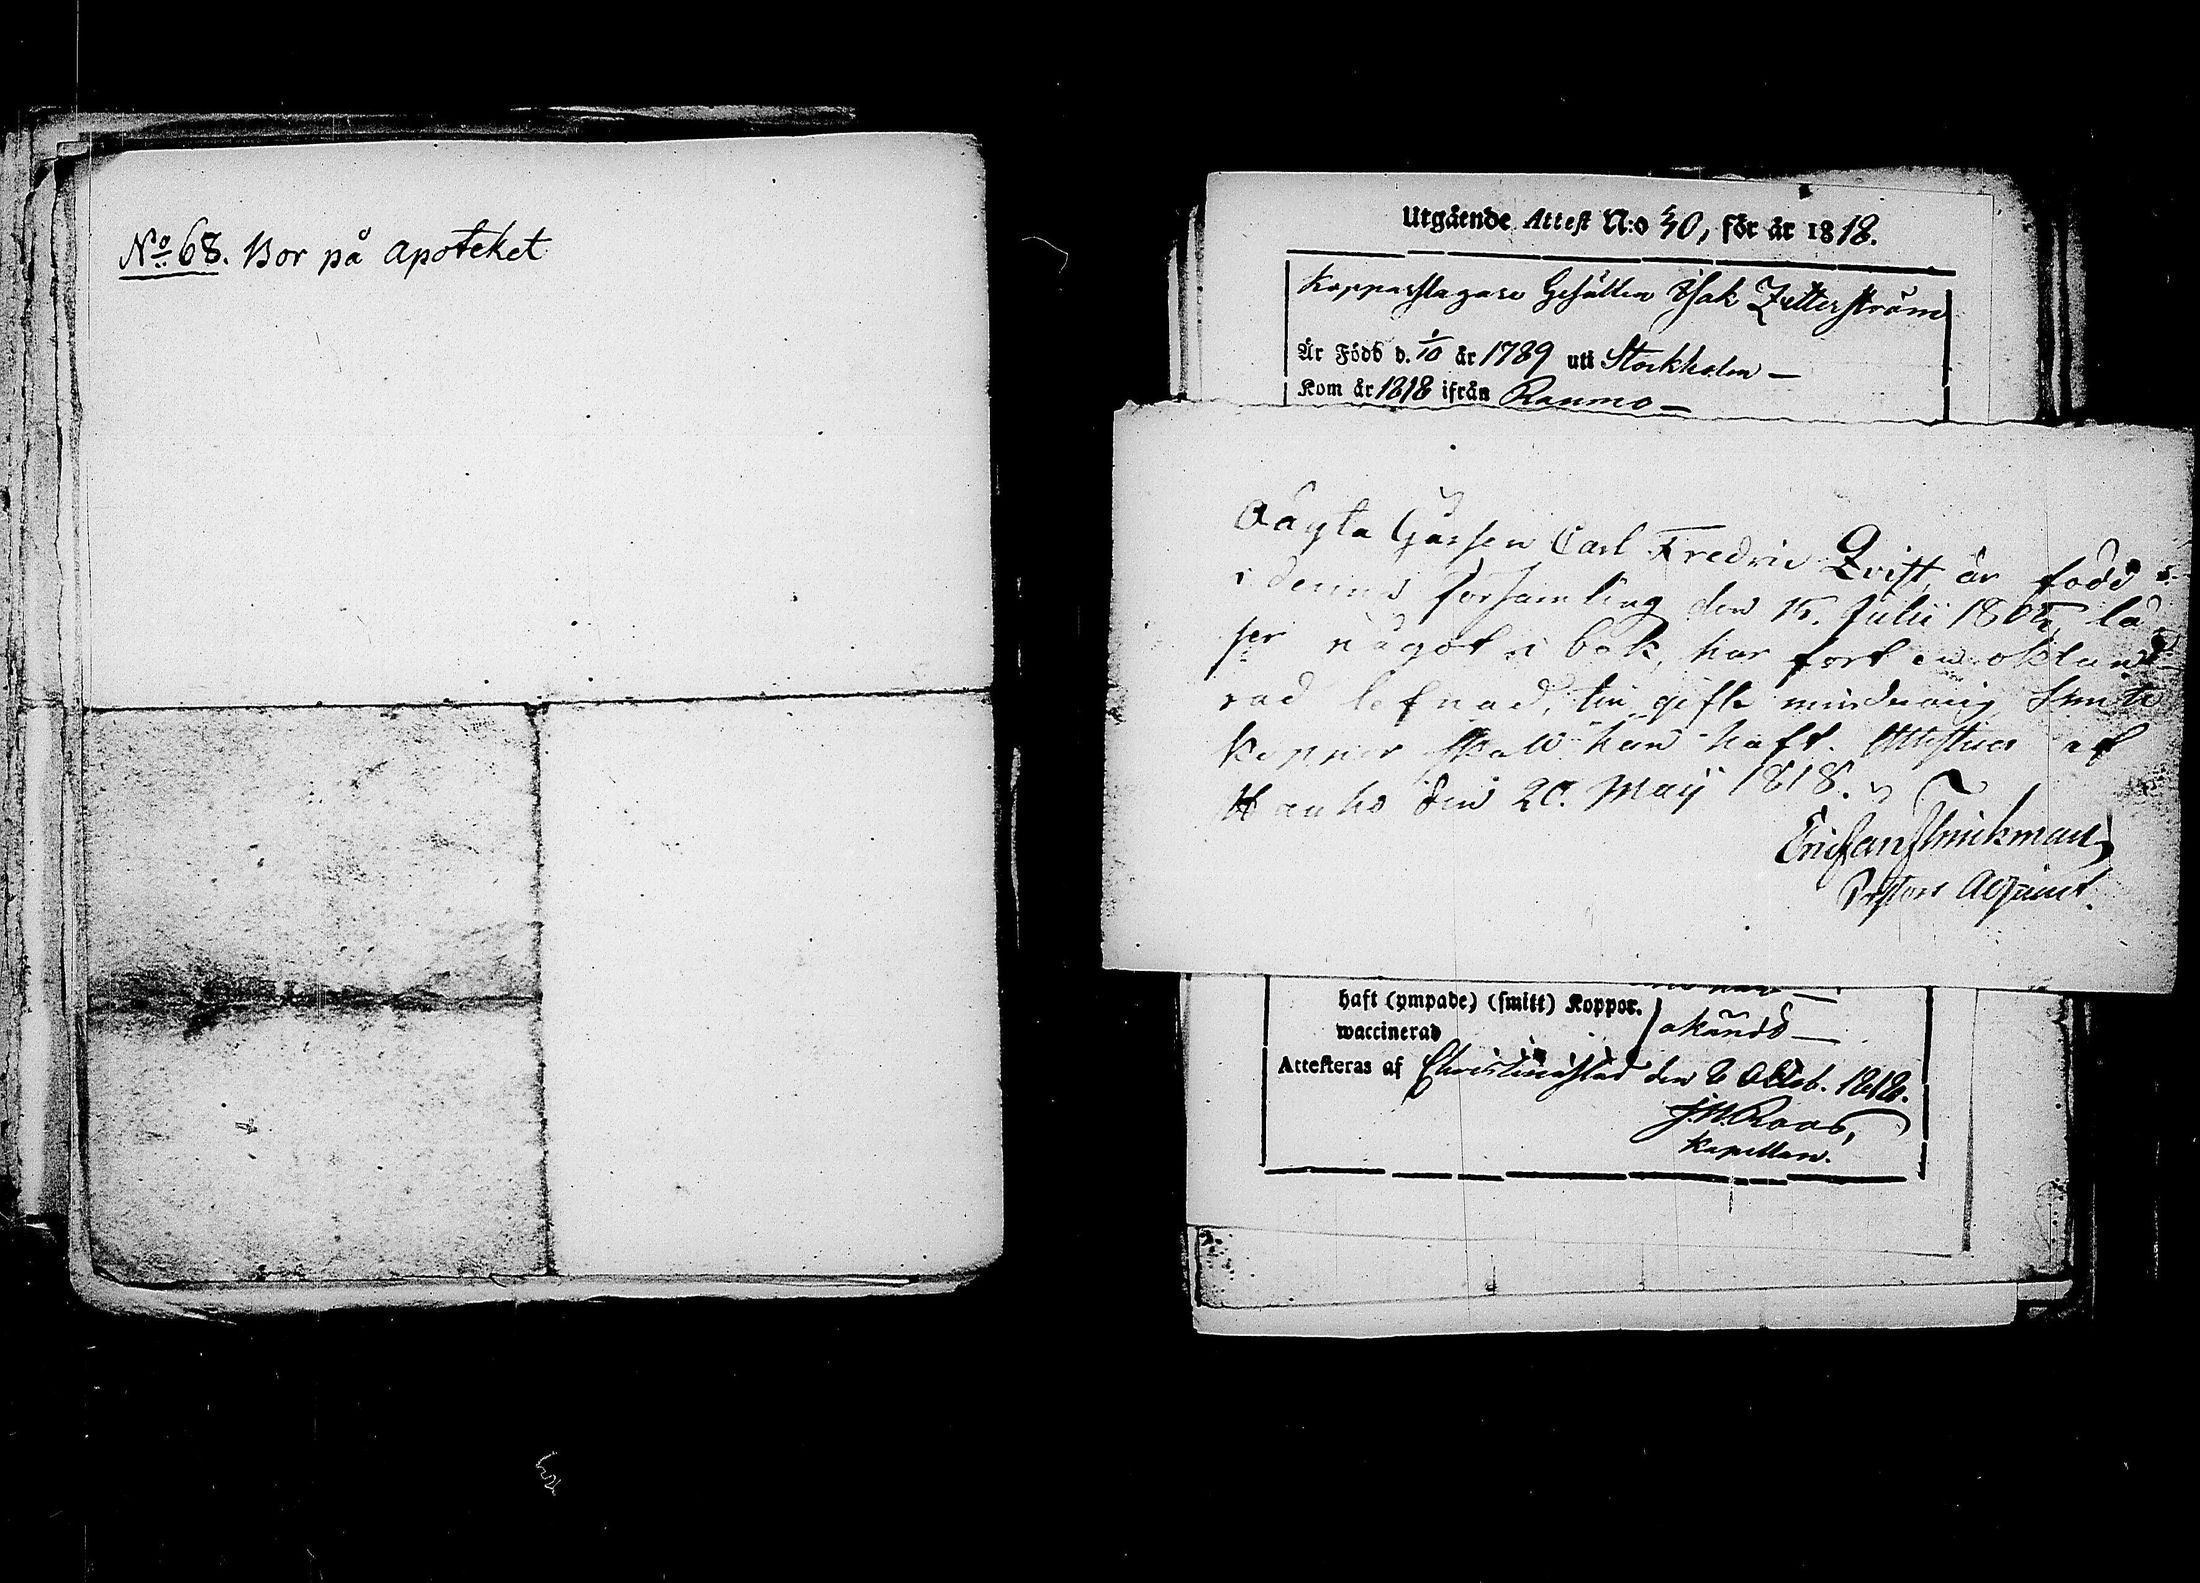 No 68. Bor på Apoteket
Utgående Attest N:o 40, för år 1818.
Kopparslagare Gesällen Isak Zetterström
Är Född d. 1/10 år 1789 uti Stockholm —
Kom år 1818 ifrån Raumo —
Gåssen Carl Fredric Qvist, är född
i denna församling den 15. Julii 1805, lä
ser något i bok, har fört en okland
rad lefnad, till gifte minderårig Smitt
koppor skall han haft. Attesteras af
den 20. Maij 1818.
Pastors Adjunct.
haft (ympade) (smitt) Koppor.
waccinerad
okändt —
Attesteras af Christinestad den 6 Octob. 1818.
J. M. Roos,
Kapellan.